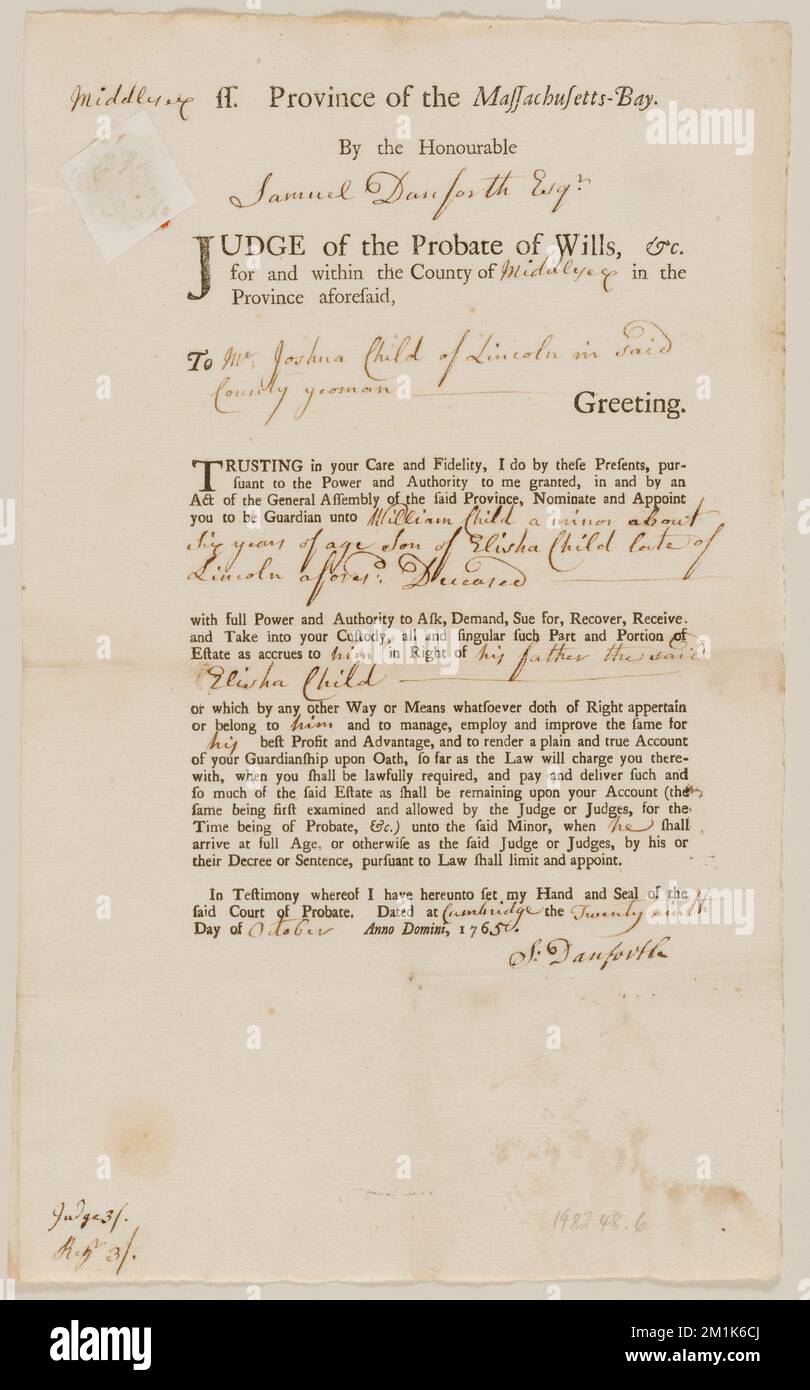 Middlesex ſſ. Province of the Maſſachuſetts-Bay.
By the Honourable
Samuel Danforth Esqr
JUDGE of the Probate of Wills, &c.
for and within the County of Middlesex in the
Province aforeſaid,
To Mr. Joshua Child of Lincoln in said
County yeoman
Greeting.
TRUSTING in your Care and Fidelity, I do by theſe Preſents, pur-
ſuant to the Power and Authority to me granted, in and by an
Act of the General Aſſembly of the ſaid Province, Nominate and Appoint
you to be Guardian unto William Child a minor about
six years of age Son of Elisha Child late of
Lincoln aforesd. Deceased
with full Power and Authority to Aſk, Demand, Sue for, Recover, Receive,
and Take into your Cuſtody, all and ſingular ſuch Part and Portion of
Eſtate as accrues to him in Right of his father the said
Elisha Child
or which by any other Way or Means whatſoever doth of Right appertain
or belong to him and to manage, employ and improve the ſame for
his beſt Profit and Advantage, and to render a plain and true Account
of your Guardianſhip upon Oath, ſo far as the Law will charge you there-
with, when you ſhall be lawfully required, and pay and deliver ſuch and
ſo much of the ſaid Eſtate as ſhall be remaining upon your Account (the
ſame being firſt examined and allowed by the Judge or Judges, for the
Time being of Probate, &c.) unto the ſaid Minor, when he ſhall
arrive at full Age, or otherwiſe as the ſaid Judge or Judges, by his or
their Decree or Sentence, purſuant to Law ſhall limit and appoint.
In Teſtimony whereof I have hereunto ſet my Hand and Seal of the
ſaid Court of Probate. Dated at Cambridge the Twenty ninth
Day of October Anno Domini, 1765.
S: Danforth
Judge 3/.
Regr 3/.
1982.48.6
alamy
Image ID: 2M1K6CJ
www.alamy.com